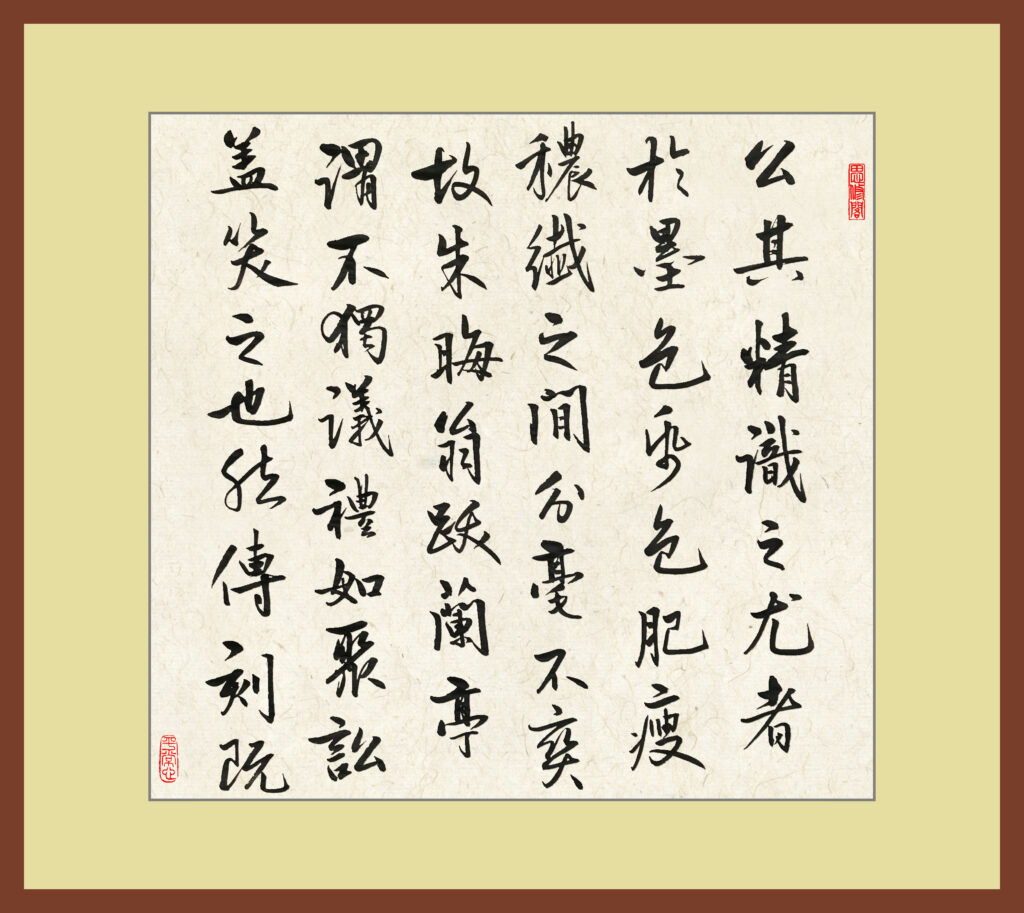 公其精識之尤者
於墨色帋色肥瘦
穠纖之間分毫不爽
故朱晦翁跋蘭亭
謂不獨議禮如聚訟
盖笑之也然傳刻既
思修閣
平常心